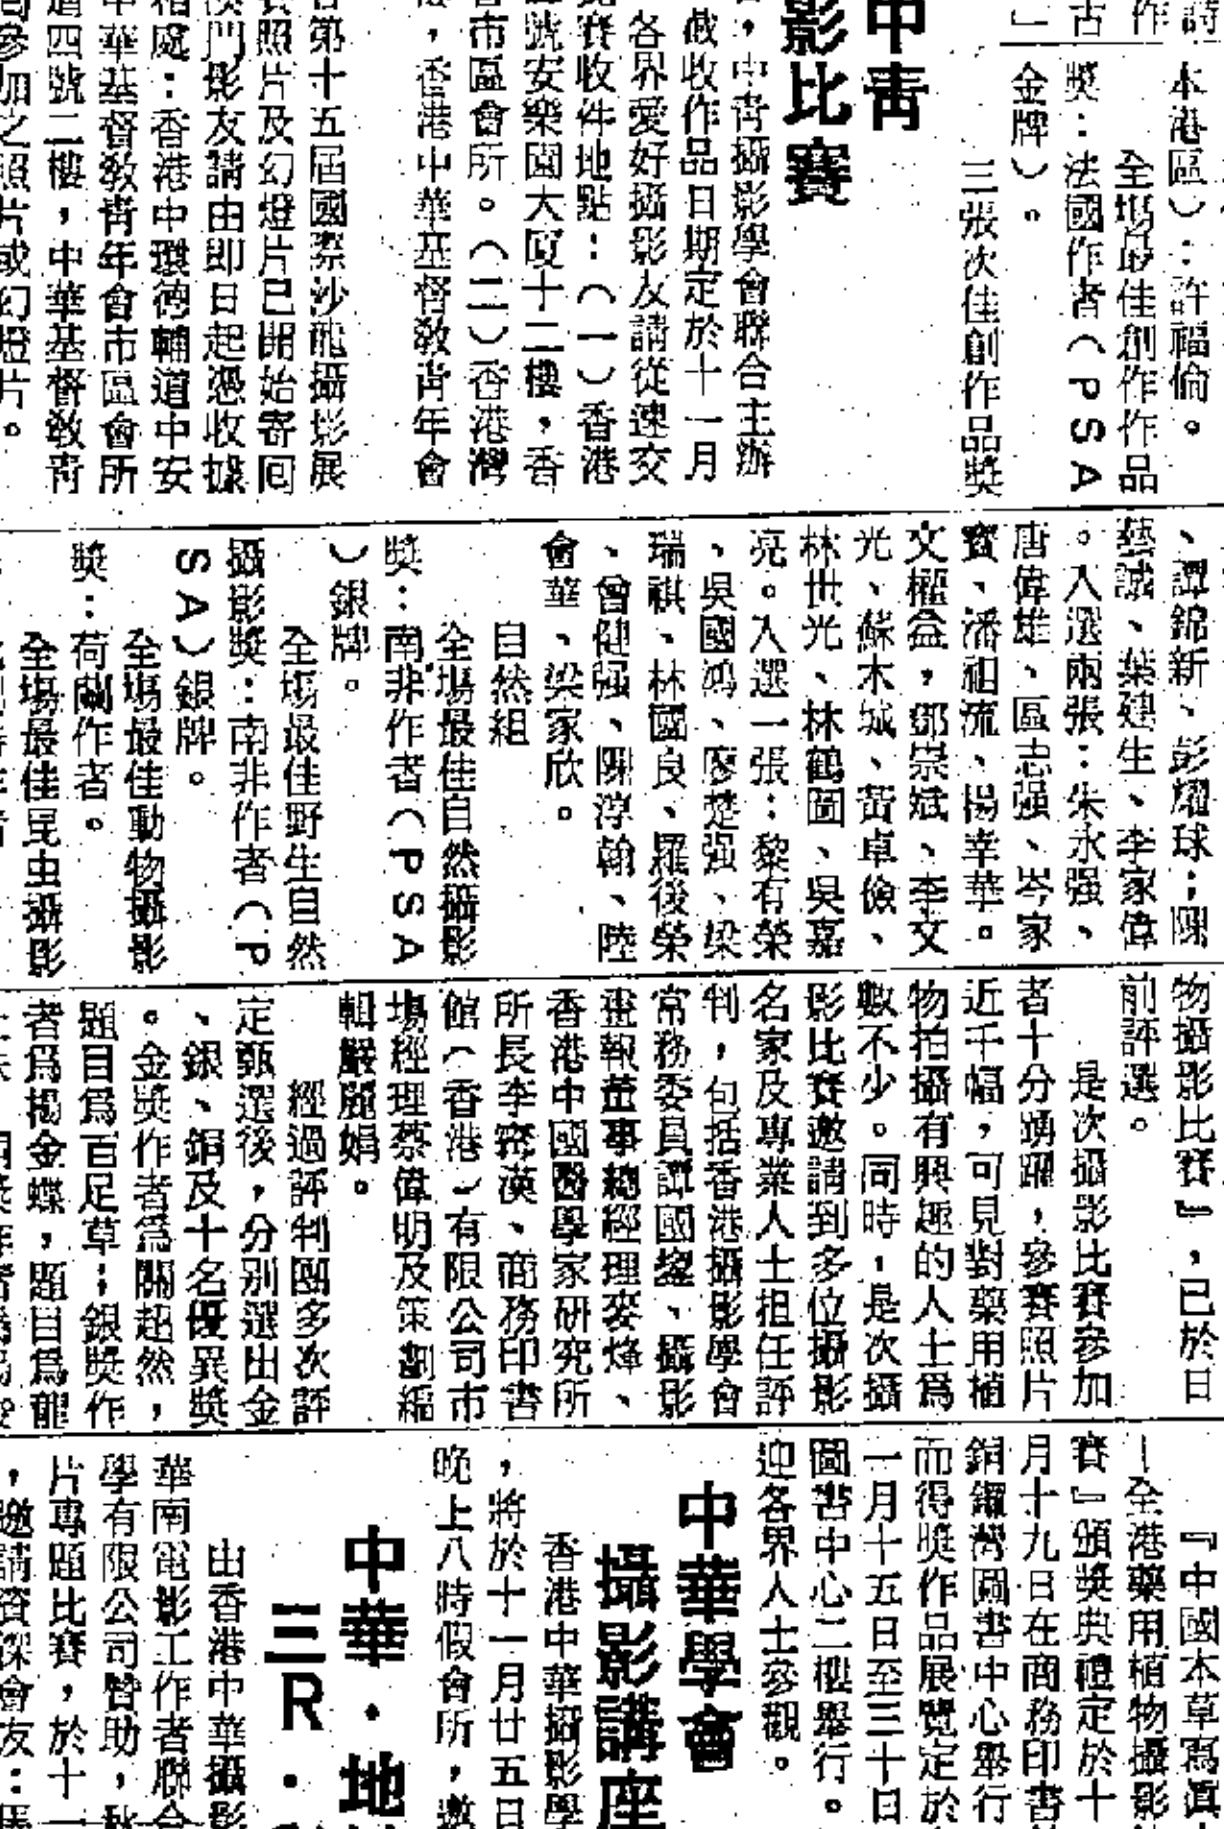 詩
作
古
」
本港區）：許福倫。
全場最佳創作作品
獎：法國作者（ＰＳＡ
金牌）。
三張次佳創作品獎
中靑
影比賽
，中靑攝影學會聯合主辦
截收作品日期定於十一月
各界愛好攝影友請從速交
賽收件地點：（一）香港
號安樂園大廈十二樓，香
市區會所。（二）香港灣
，香港中華基督敎靑年會
第十五屆國際沙龍攝影展
照片及幻燈片已開始寄囘
澳門影友請由即日起憑收據
相處：香港中環德輔道中安
中華基督敎靑年會市區會所
道四號二樓，中華基督敎靑
參加之照片或幻燈片。
、譚錦新、彭耀球；陳
藝誠、葉建生、李家偉
。入選兩張：朱永强、
唐偉雄、區志强、岑家
寳、潘祖流、楊幸華。
文權益，鄧崇斌、李文
光、蘇木城、黃卓儉、
林世光、林鶴圖、吳嘉
亮。入選一張：黎有榮
、吳國鴻、廖楚强、梁
瑞祺、林國良、羅後榮
、曾健强、陳淳翰、陸
會華、梁家欣。
自然組
全場最佳自然攝影
獎：南非作者（ＰＳＡ
）銀牌。
全場最佳野生自然
攝影獎：南非作者（Ｐ
ＳＡ）銀牌。
全場最佳動物攝影
獎：荷蘭作者。
全場最佳昆虫攝影
物攝影比賽』，已於日
前評選。
是次攝影比賽參加
者十分踴躍，參賽照片
近千幅，可見對藥用植
物拍攝有興趣的人士爲
數不少。同時，是次攝
影比賽邀請到多位攝影
名家及專業人士担任評
判，包括香港攝影學會
常務委員譚國鎏、攝影
畫報董事總經理麥烽、
香港中國醫學家研究所
所長李甯漢、商務印書
館（香港）有限公司市
場經理蔡偉明及策劃編
輯嚴麗娟。
經過評判團多次評
定甄選後，分別選出金
、銀、銅及十名優異獎
。金獎作者爲關超然，
題目爲百足草；銀獎作
者爲楊金蝶，題目爲
『中國本草寫眞
—全港藥用植物攝影
賽』頒獎典禮定於十
月十九日在商務印書
銅鑼灣圖書中心舉行
而得獎作品展覽定於
一月十五日至三十日
圖書中心二樓舉行。
迎各界人士參觀。
中華學會
攝影講座
香港中華攝影學
，將於十一月廿五日
晚上八時假會所，邀
中華・地
三Ｒ・
由香港中華攝影
華南電影工作者聯合
學有限公司贊助，秋
片專題比賽，於十一
，邀請資深會友：